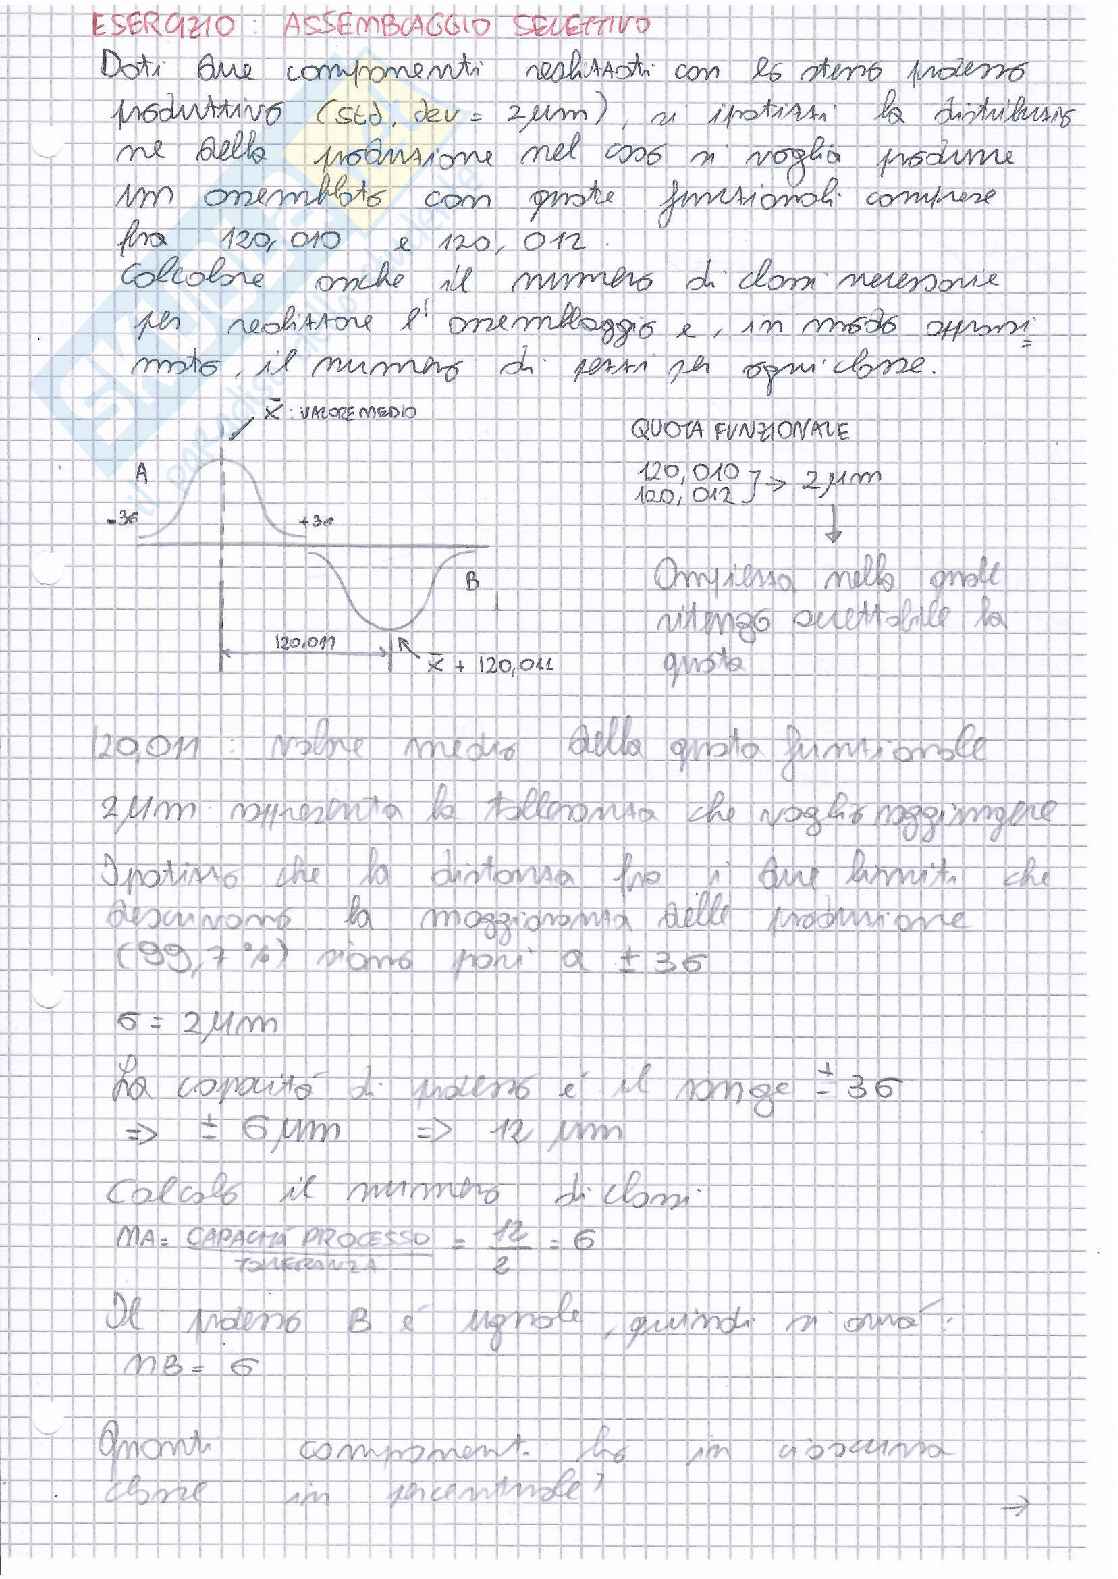 ESERCIZIO: ASSEMBLAGGIO SELETTIVO
Dati due componenti realizzati con lo stesso processo
produttivo (std. dev = 2μm), si ipotizzi la distribuzio
ne della produzione nel caso si voglia produrre
un assemblato con quote funzionali comprese
fra 120,010 e 120,012.
Calcolare anche il numero di classi necessarie
per realizzare l'assemblaggio e, in modo approssi=
mato, il numero di pezzi per ogni classe.
x̄: VALORE MEDIO
QUOTA FUNZIONALE
A
120,010
120,012 → 2μm
-3σ
+3σ
Ampiezza nella quale
B
ritengo accettabile la
quota
120,011
x̄ + 120,011
120,011: valore medio della quota funzionale
2μm rappresenta la tolleranza che voglio raggiungere
Ipotizzo che la distanza fra i due limiti che
descrivono la maggioranza della produzione
(99,7%) siano pari a ±3σ
σ = 2μm
La capacità di processo è il range ±3σ
⇒ ± 6μm ⇒ 12 μm
Calcolo il numero di classi:
MA = CAPACITÀ PROCESSO / TOLLERANZA = 12/2 = 6
Il processo B è uguale, quindi si avrà:
MB = 6
Quanti componenti ho in ciascuna
classe in percentuale?
→